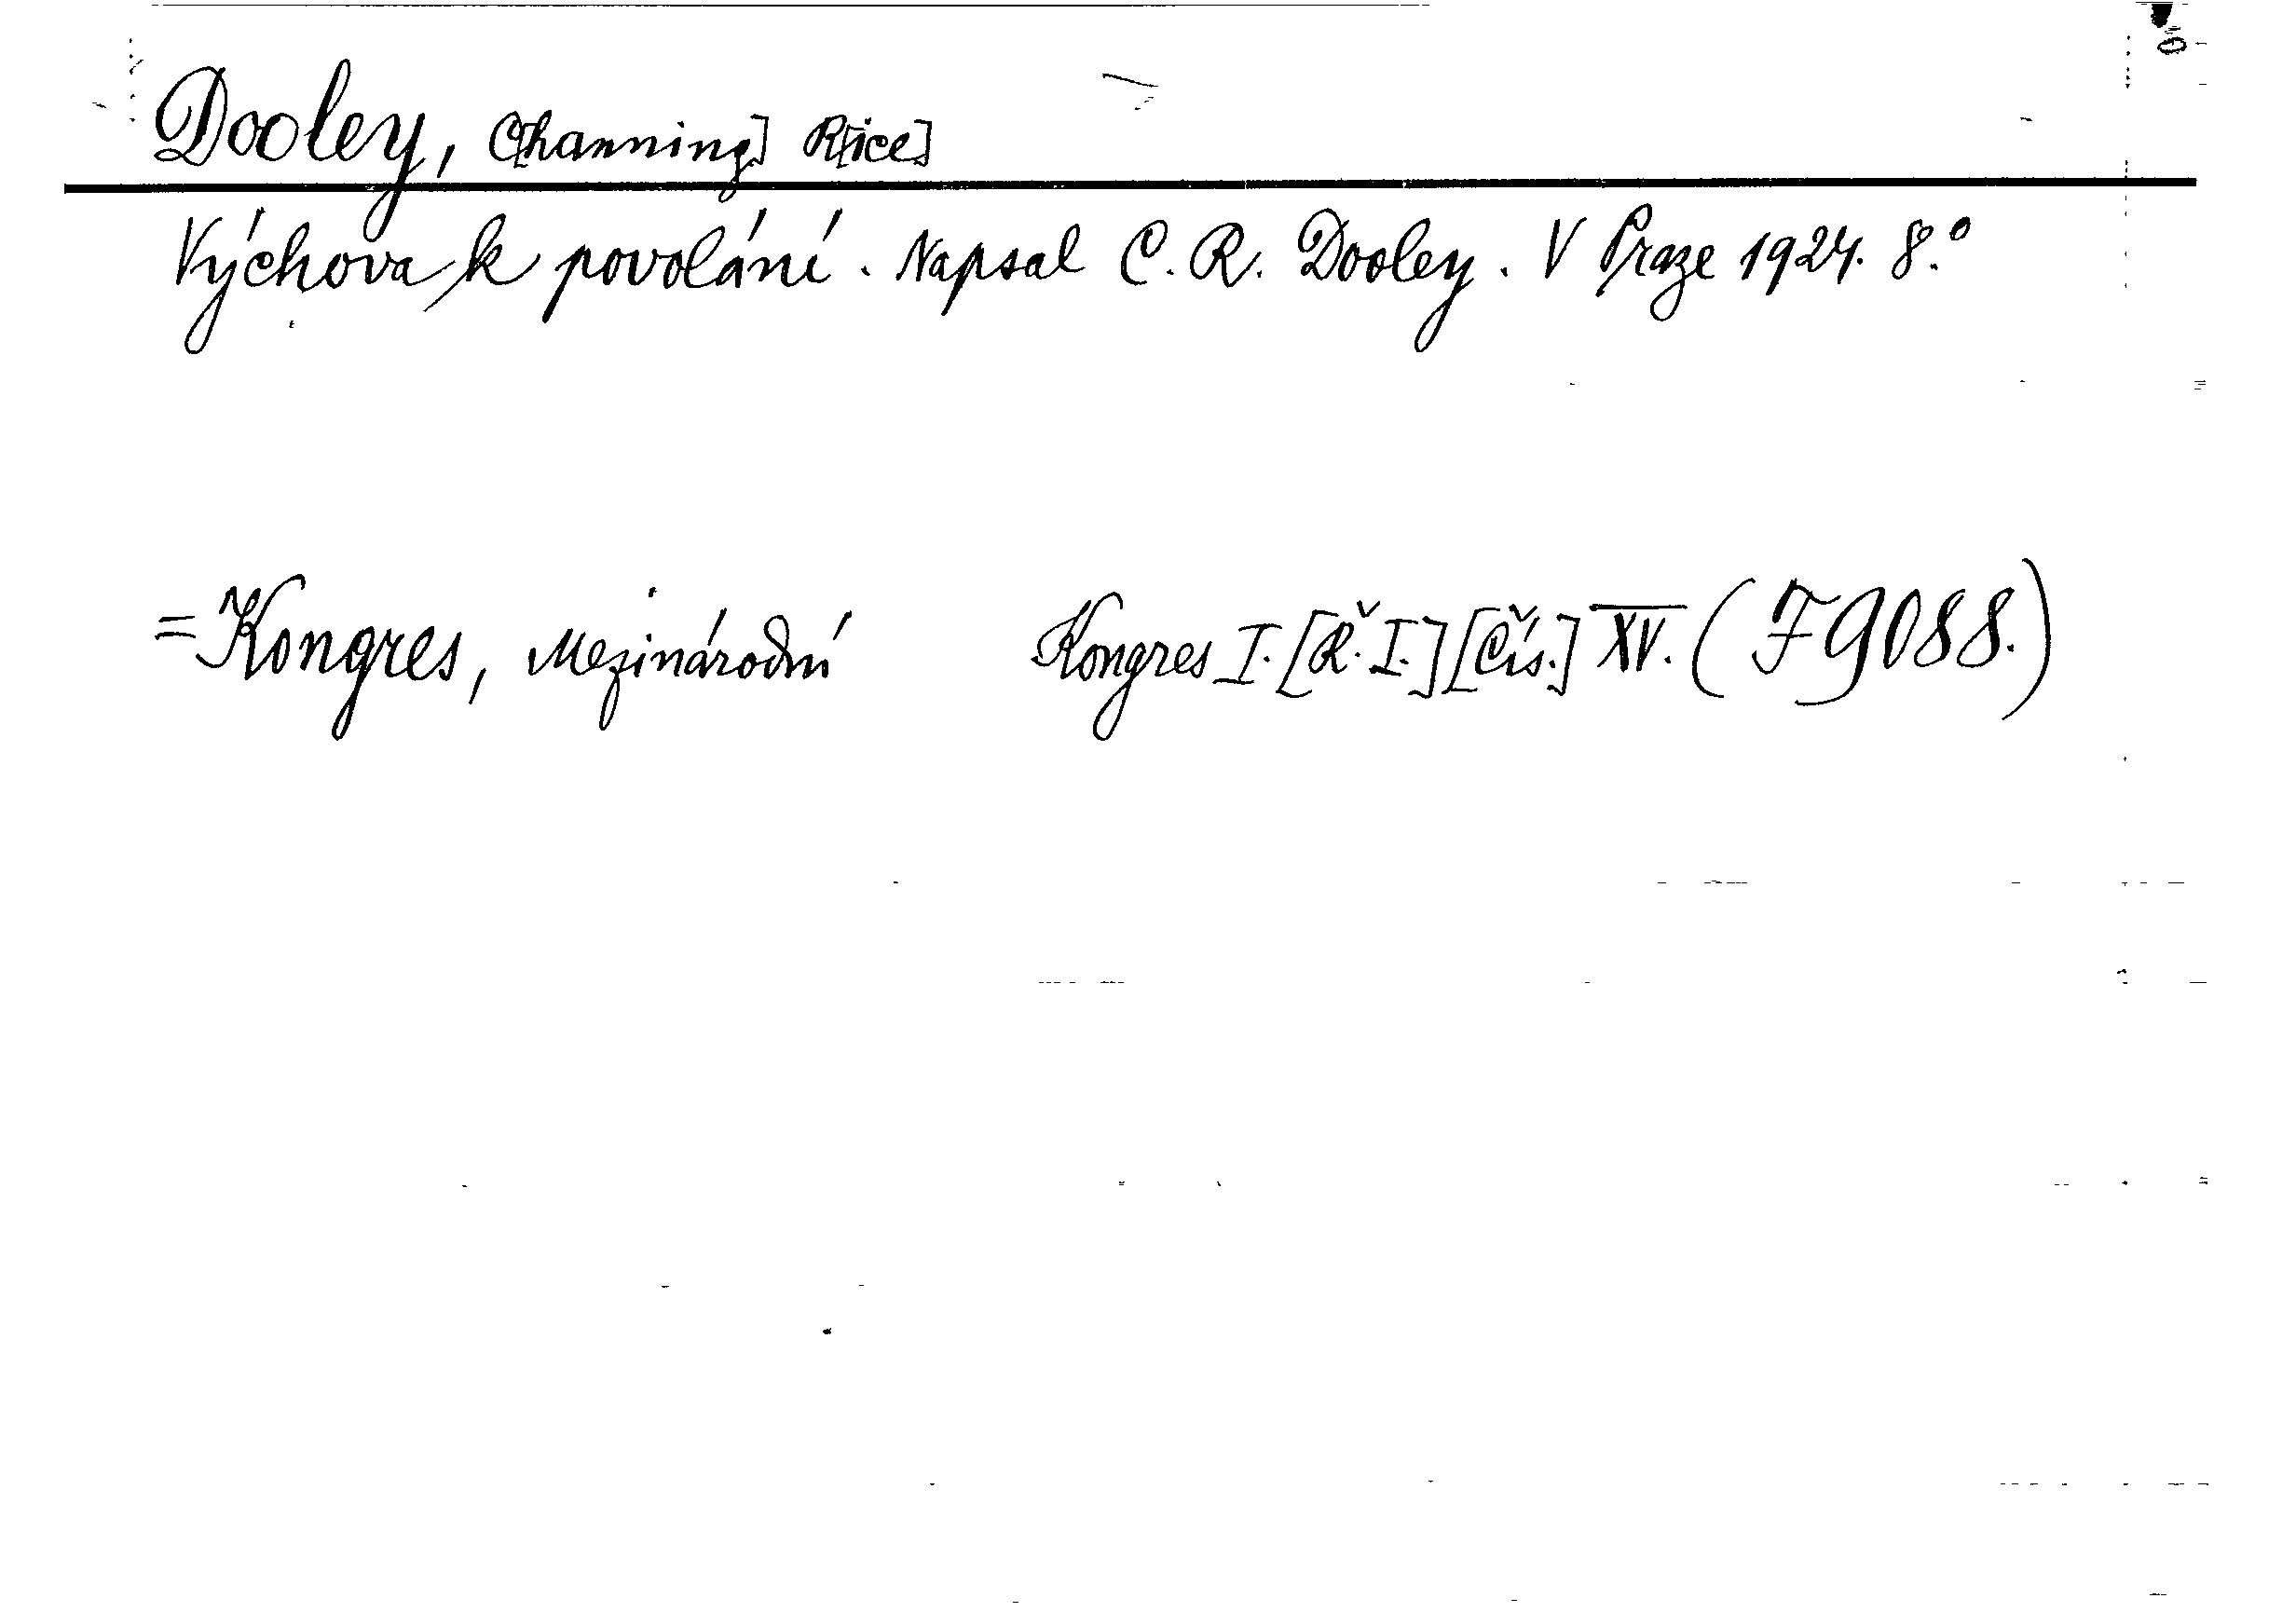 Dooley, C[hanning] R[ice]
Výchova k povolání. Napsal C. R. Dooley. V Praze 1924. 8.º
=Kongres, Mezinárodní Kongres I. [Ř. I.] [Čís.] XV. (I 9088.)